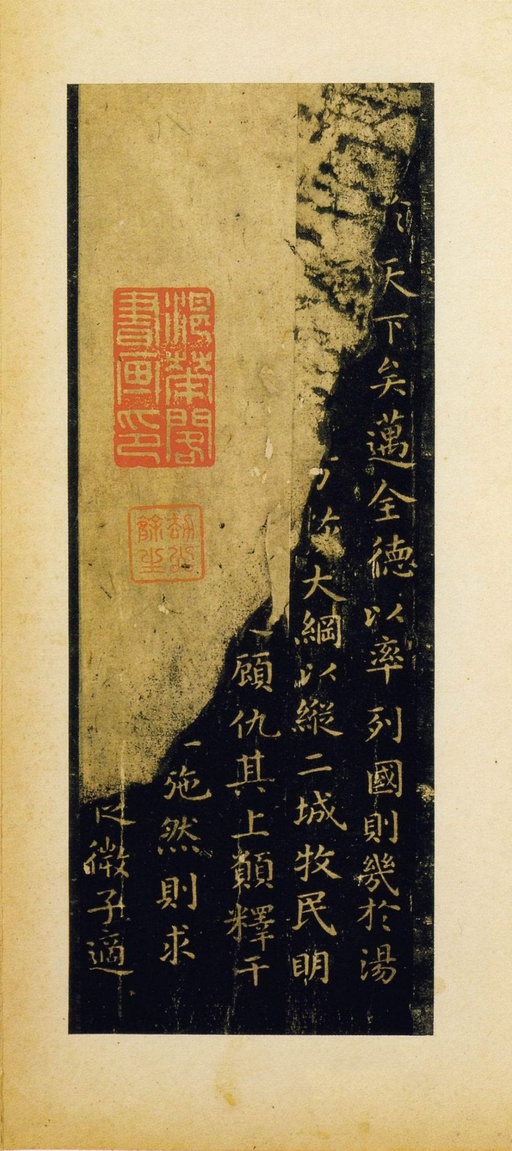 天下矣邁全德以率列國則幾於湯
大綱以縱二城牧民明
顧仇其上願釋干
施然則求
微子適
閣
書畫印
劫後
餘生